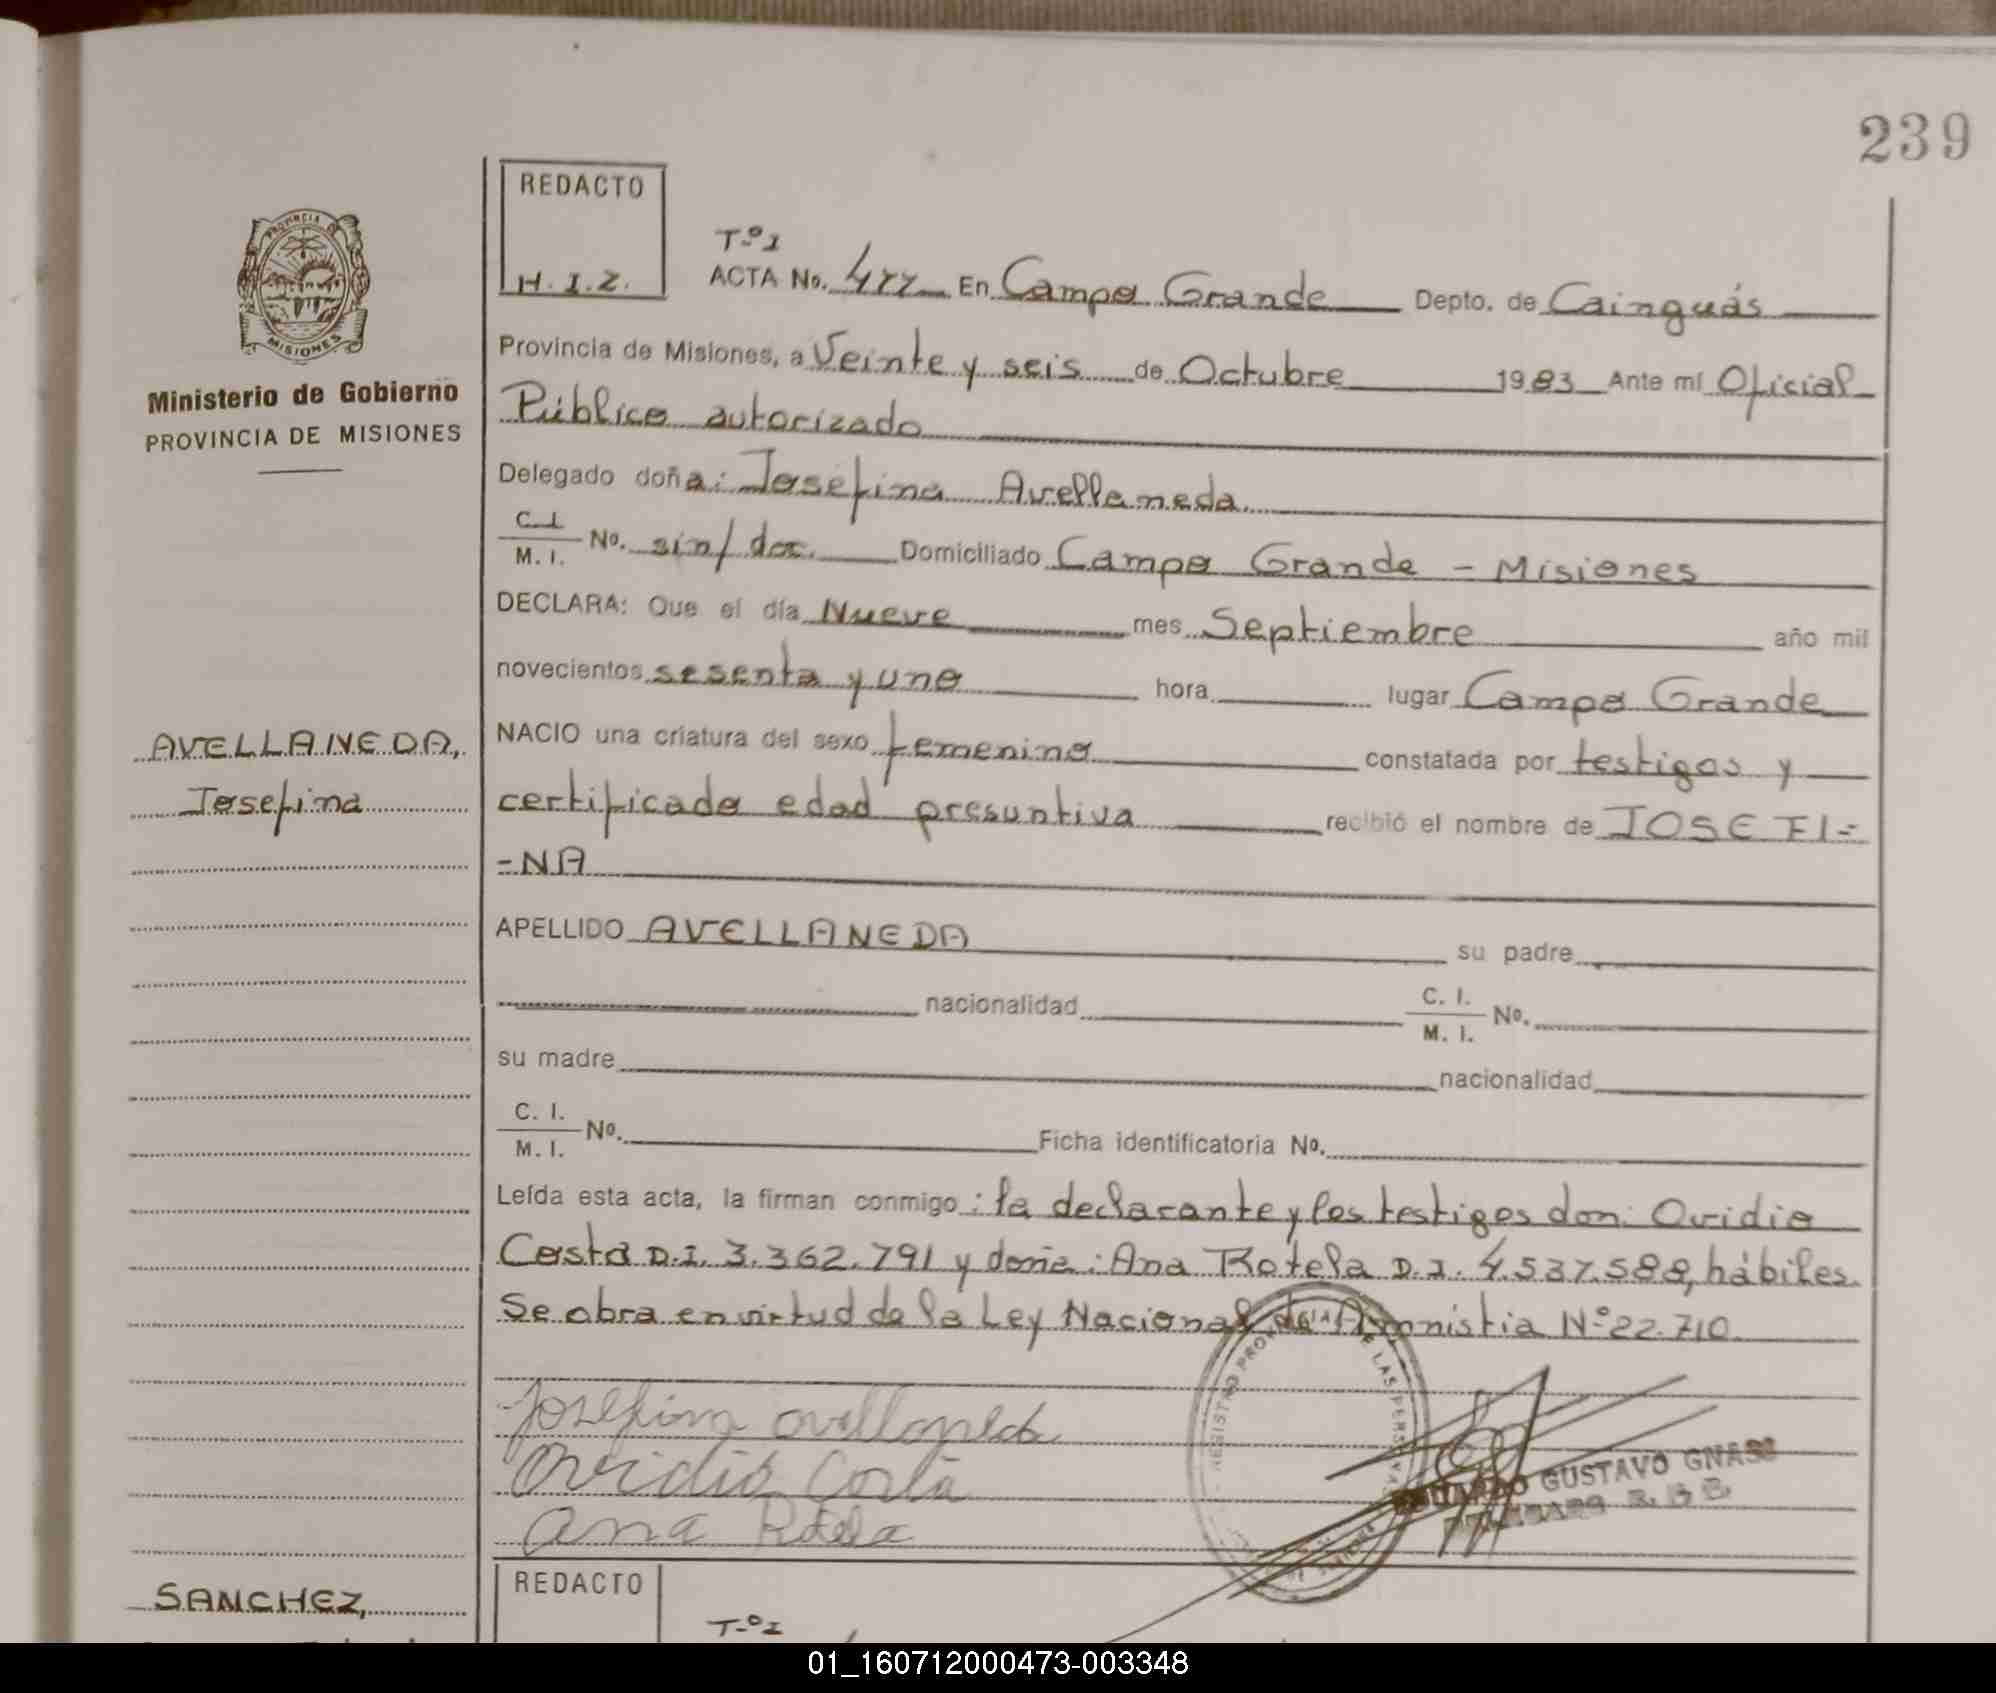 239
REDACTO
H.I.Z.
PROVINCIA DE
MISIONES
Ministerio de Gobierno
PROVINCIA DE MISIONES
T.º I
ACTA No. 477 En Campo Grande Depto. de Cainguás
Provincia de Misiones, a Veinte y seis de Octubre 1983 Ante mí Oficial
Público autorizado
Delegado doña: Josefina Avellaneda
C.I. / M. I. No. sin/doc. Domiciliado Campo Grande - Misiones
DECLARA: Que el día Nueve mes Septiembre año mil
novecientos sesenta y uno hora lugar Campo Grande
AVELLANEDA,
Josefina
NACIO una criatura del sexo femenino constatada por testigos y
certificado edad presuntiva recibió el nombre de JOSEFI=
=NA
APELLIDO AVELLANEDA su padre
nacionalidad C. I. / M. I. No.
su madre nacionalidad
C. I. / M. I. No. Ficha identificatoria No.
Leída esta acta, la firman conmigo: la declarante y los testigos don: Ovidio
Costa D.I. 3.362.791 y doña: Ana Rotela D.I. 4.537.588, hábiles.
Se obra en virtud de la Ley Nacional de Amnistia Nº 22.710
Josefina avellaneda
Ovidio Costa
Ana Rotela
GUSTAVO GNASS
REDACTO
SANCHEZ,
T.º I
01_160712000473-003348